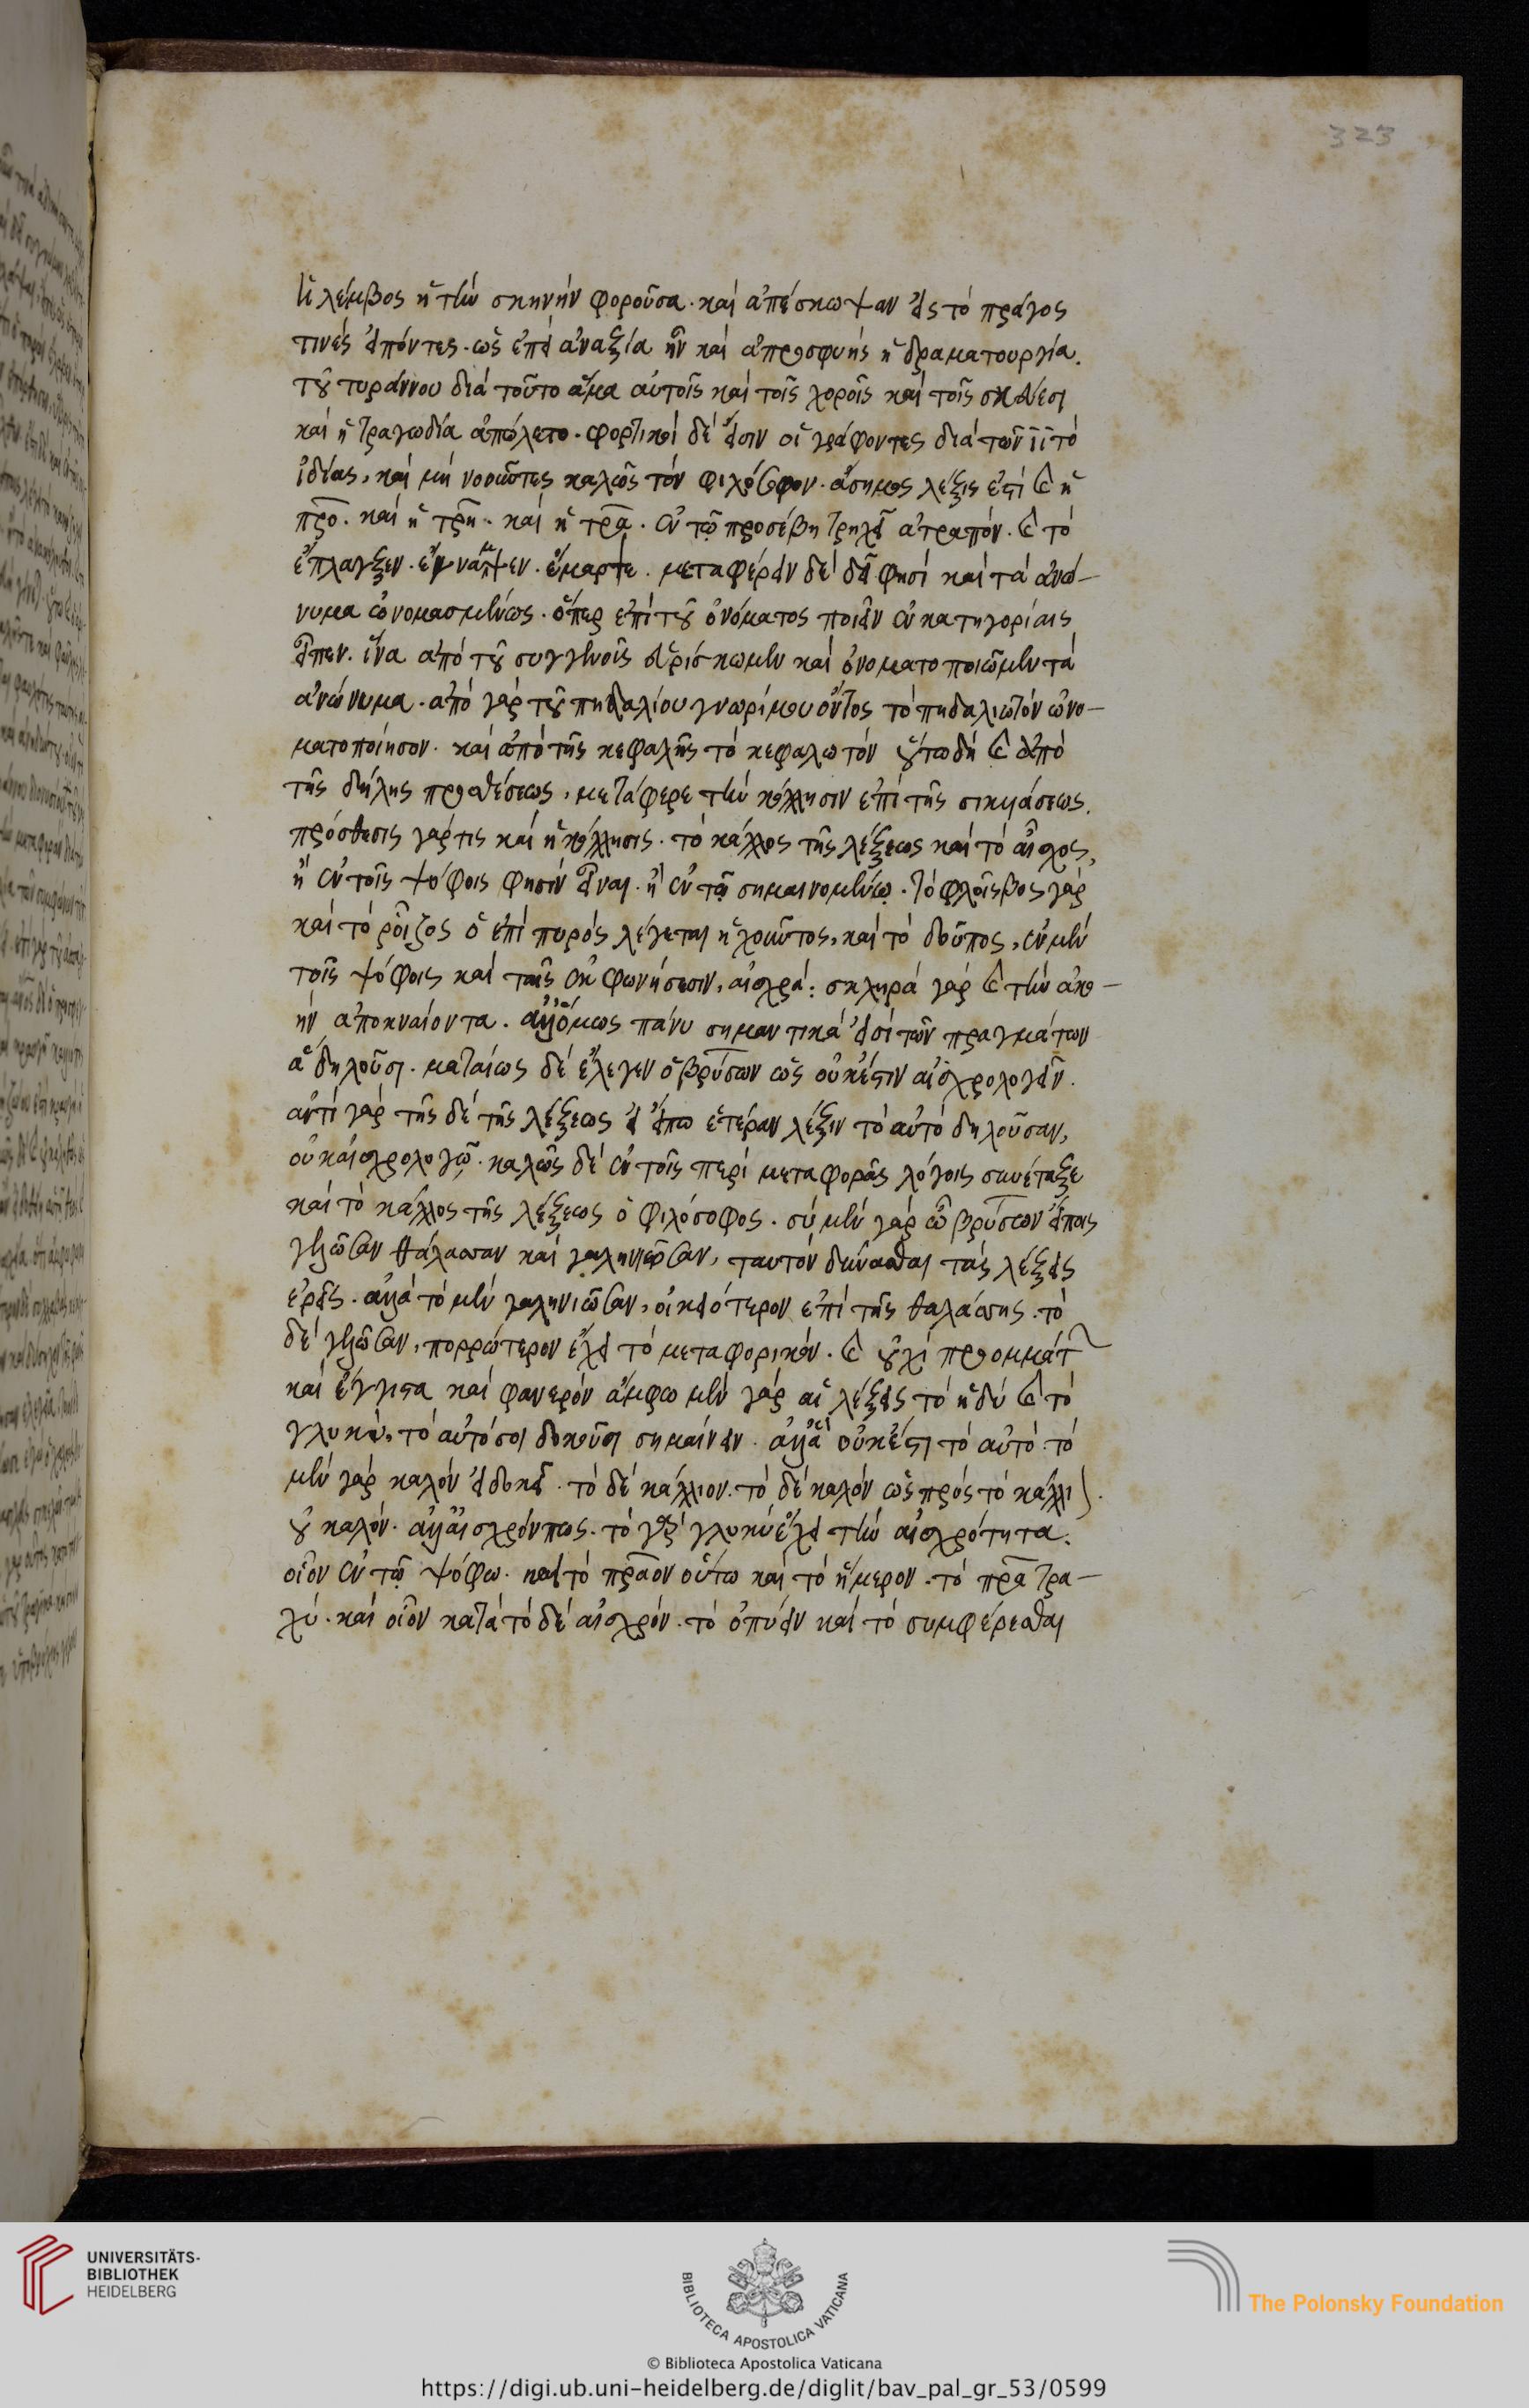 323
ἢ λέμβος ἡ τὴν σκηνὴν φοροῦσα. καὶ ἀπέσκωψαν εἰς τὸ πρᾶγος
τινὲς εἰπόντες. ὡς ἐπεὶ ἀναξία ἦν καὶ ἀπροσφυὴς ἡ δραματουργία.
τοῦ τυράννου διὰ τοῦτο ἅμα αὐτοῖς καὶ τοῖς χοροῖς καὶ τοῖς σκεύεσι
καὶ ἡ τραγωδία ἀπώλετο. φορτικοὶ δέ εἰσιν οἱ γράφοντες διὰ τῶν ϊϊ τὸ
ἰδίας, καὶ μὴ νοοῦντες καλῶς τὸν φιλόσοφον. ἄσημος λέξις ἐστὶ καὶ ἡ
προ. καὶ ἡ τρη. καὶ ἡ τρα. ἐν τῷ προσέβη τρηχεῖ ἀτραπόν. καὶ τὸ
ἔπλαγξεν. ἔγναμψεν. ἔμαρψε. μεταφέρειν δὲ δεῖ φησὶ καὶ τὰ ἀνώ-
νυμα ὠνομασμένως. ὅπερ ἐπὶ τοῦ ὀνόματος ποιεῖν ἐν κατηγορίαις
εἶπεν. ἵνα ἀπὸ τοῦ συγγενοῦς εὑρίσκωμεν καὶ ὀνοματοποιῶμεν τὰ
ἀνώνυμα. ἀπὸ γὰρ τοῦ πηδαλίου γνωρίμου ὄντος τὸ πηδαλιωτὸν ὠνο-
ματοποίησον. καὶ ἀπὸ τῆς κεφαλῆς τὸ κεφαλωτὸν οὕτω δὴ καὶ ἀπὸ
τῆς δήλης προσθέσεως, μετάφερε τὴν κόλλησιν ἐπὶ τῆς σικυάσεως.
πρόσθεσις γάρ τις καὶ ἡ κόλλησις. τὸ κάλλος τῆς λέξεως καὶ τὸ αἶσχος,
ἢ ἐν τοῖς ψόφοις φησὶν εἶναι. ἢ ἐν τῷ σημαινομένῳ. τὸ φλοῖσβος γὰρ
καὶ τὸ ῥοῖζος ὃ ἐπὶ πυρὸς λέγεται ἠχοῦντος, καὶ τὸ δοῦπος, ἐν μὲν
τοῖς ψόφοις καὶ ταῖς ἐκφωνήσεσιν, αἰσχρά: σκληρὰ γὰρ καὶ τὴν ἀκο-
ὴν ἀποκναίοντα. ἀλλ' ὅμως πάνυ σημαντικά εἰσὶ τῶν πραγμάτων
ἃ δηλοῦσι. ματαίως δὲ ἔλεγεν ὁ βρύσων ὡς οὐκ ἔστιν αἰσχρολογεῖν.
ἀντὶ γὰρ τῆς δὲ τῆς λέξεως εἰ εἴπω ἑτέραν λέξιν τὸ αὐτὸ δηλοῦσαν,
οὐκ αἰσχρολογῶ. καλῶς δὲ ἐν τοῖς περὶ μεταφορᾶς λόγοις συνέταξε
καὶ τὸ κάλλος τῆς λέξεως ὁ φιλόσοφος. σὺ μὲν γὰρ ὦ βρύσων εἴποις
γελῶσαν θάλασσαν καὶ γαληνιῶσαν, ταυτὸν δύνασθαι τὰς λέξεις
ἐρεῖς. ἀλλὰ τὸ μὲν γαληνιῶσαν, οἰκειότερον ἐπὶ τῆς θαλάσσης. τὸ
δὲ γελῶσαν, πορρώτερον ἔχει τὸ μεταφορικόν. καὶ οὐχὶ προομμάτ
καὶ ἔγγιστα καὶ φανερὸν ἄμφω μὲν γὰρ αἱ λέξεις τὸ ἡδὺ καὶ τὸ
γλυκύ, τὸ αὐτό σοι δοκοῦσι σημαίνειν. ἀλλ' οὐκ ἔστι τὸ αὐτὸ. τὸ
μὲν γὰρ καλὸν εἰδοκεῖ. τὸ δὲ κάλλιον. τὸ δὲ καλὸν ὡς πρὸς τὸ κάλλι
οὐ καλόν. ἀλλ' αἰσχρόν πως. τὸ γὰρ γλυκὺ ἔχει τὴν αἰσχρότητα.
οἷον ἐν τῷ ψόφω. καὶ τὸ πρᾶον οὕτω καὶ τὸ ἥμερον. τὸ πρα τρα-
χύ. καὶ οἷον κατὰ τὸ δὲ αἰσχρόν. τὸ ὀπύειν καὶ τὸ συμφέρεσθαι
UNIVERSITÄTS-
BIBLIOTHEK
HEIDELBERG
BIBLIOTECA APOSTOLICA VATICANA
The Polonsky Foundation
© Biblioteca Apostolica Vaticana
https://digi.ub.uni-heidelberg.de/diglit/bav_pal_gr_53/0599